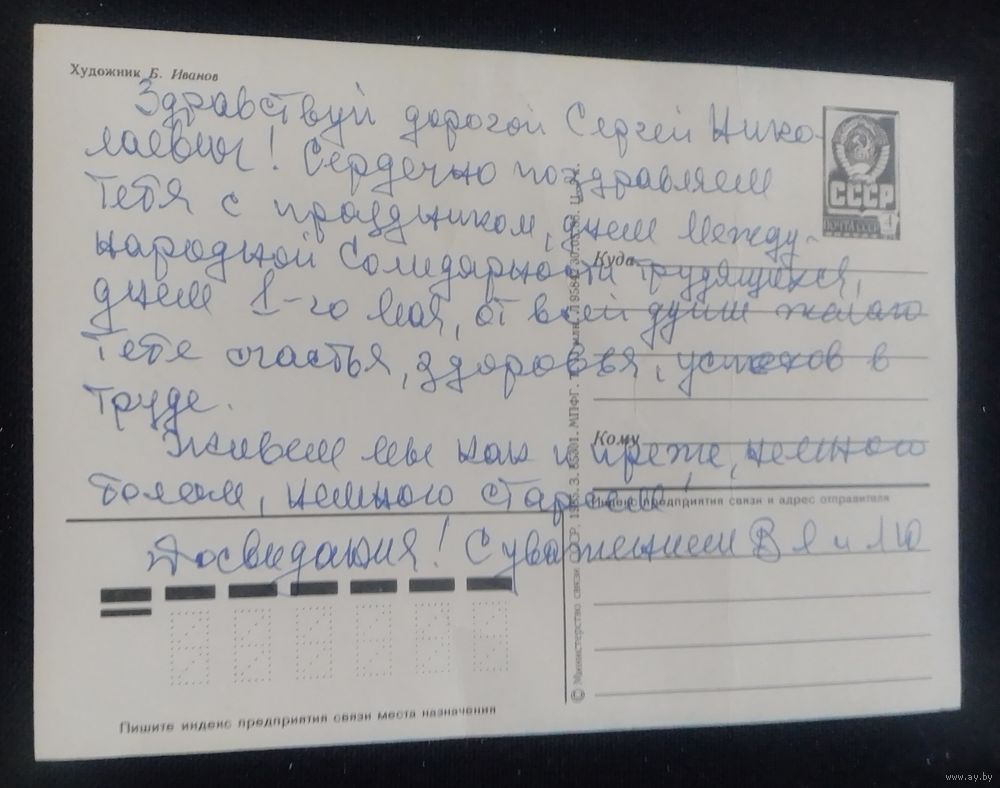 Художник Б. Иванов
Здравствуй дорогой Сергей Нико-
лаевич! Сердечно поздравляем
тебя с праздником, днем Между-
народной Солидарности трудящихся,
днем 1-го Мая, от всей души желаю
тебе счастья, здоровья, успехов в
труде.
Живем мы как и преже, немного
болеем, немного стареем!
Досвидания! С уважением В Я и ЛЮ
СССР
ПОЧТА СССР
4
Куда
Кому
Индекс предприятия связи и адрес отправителя
© Министерство связи СССР, 1986. З. 86301. МПФГ.
Пишите индекс предприятия связи места назначения
www.ay.by